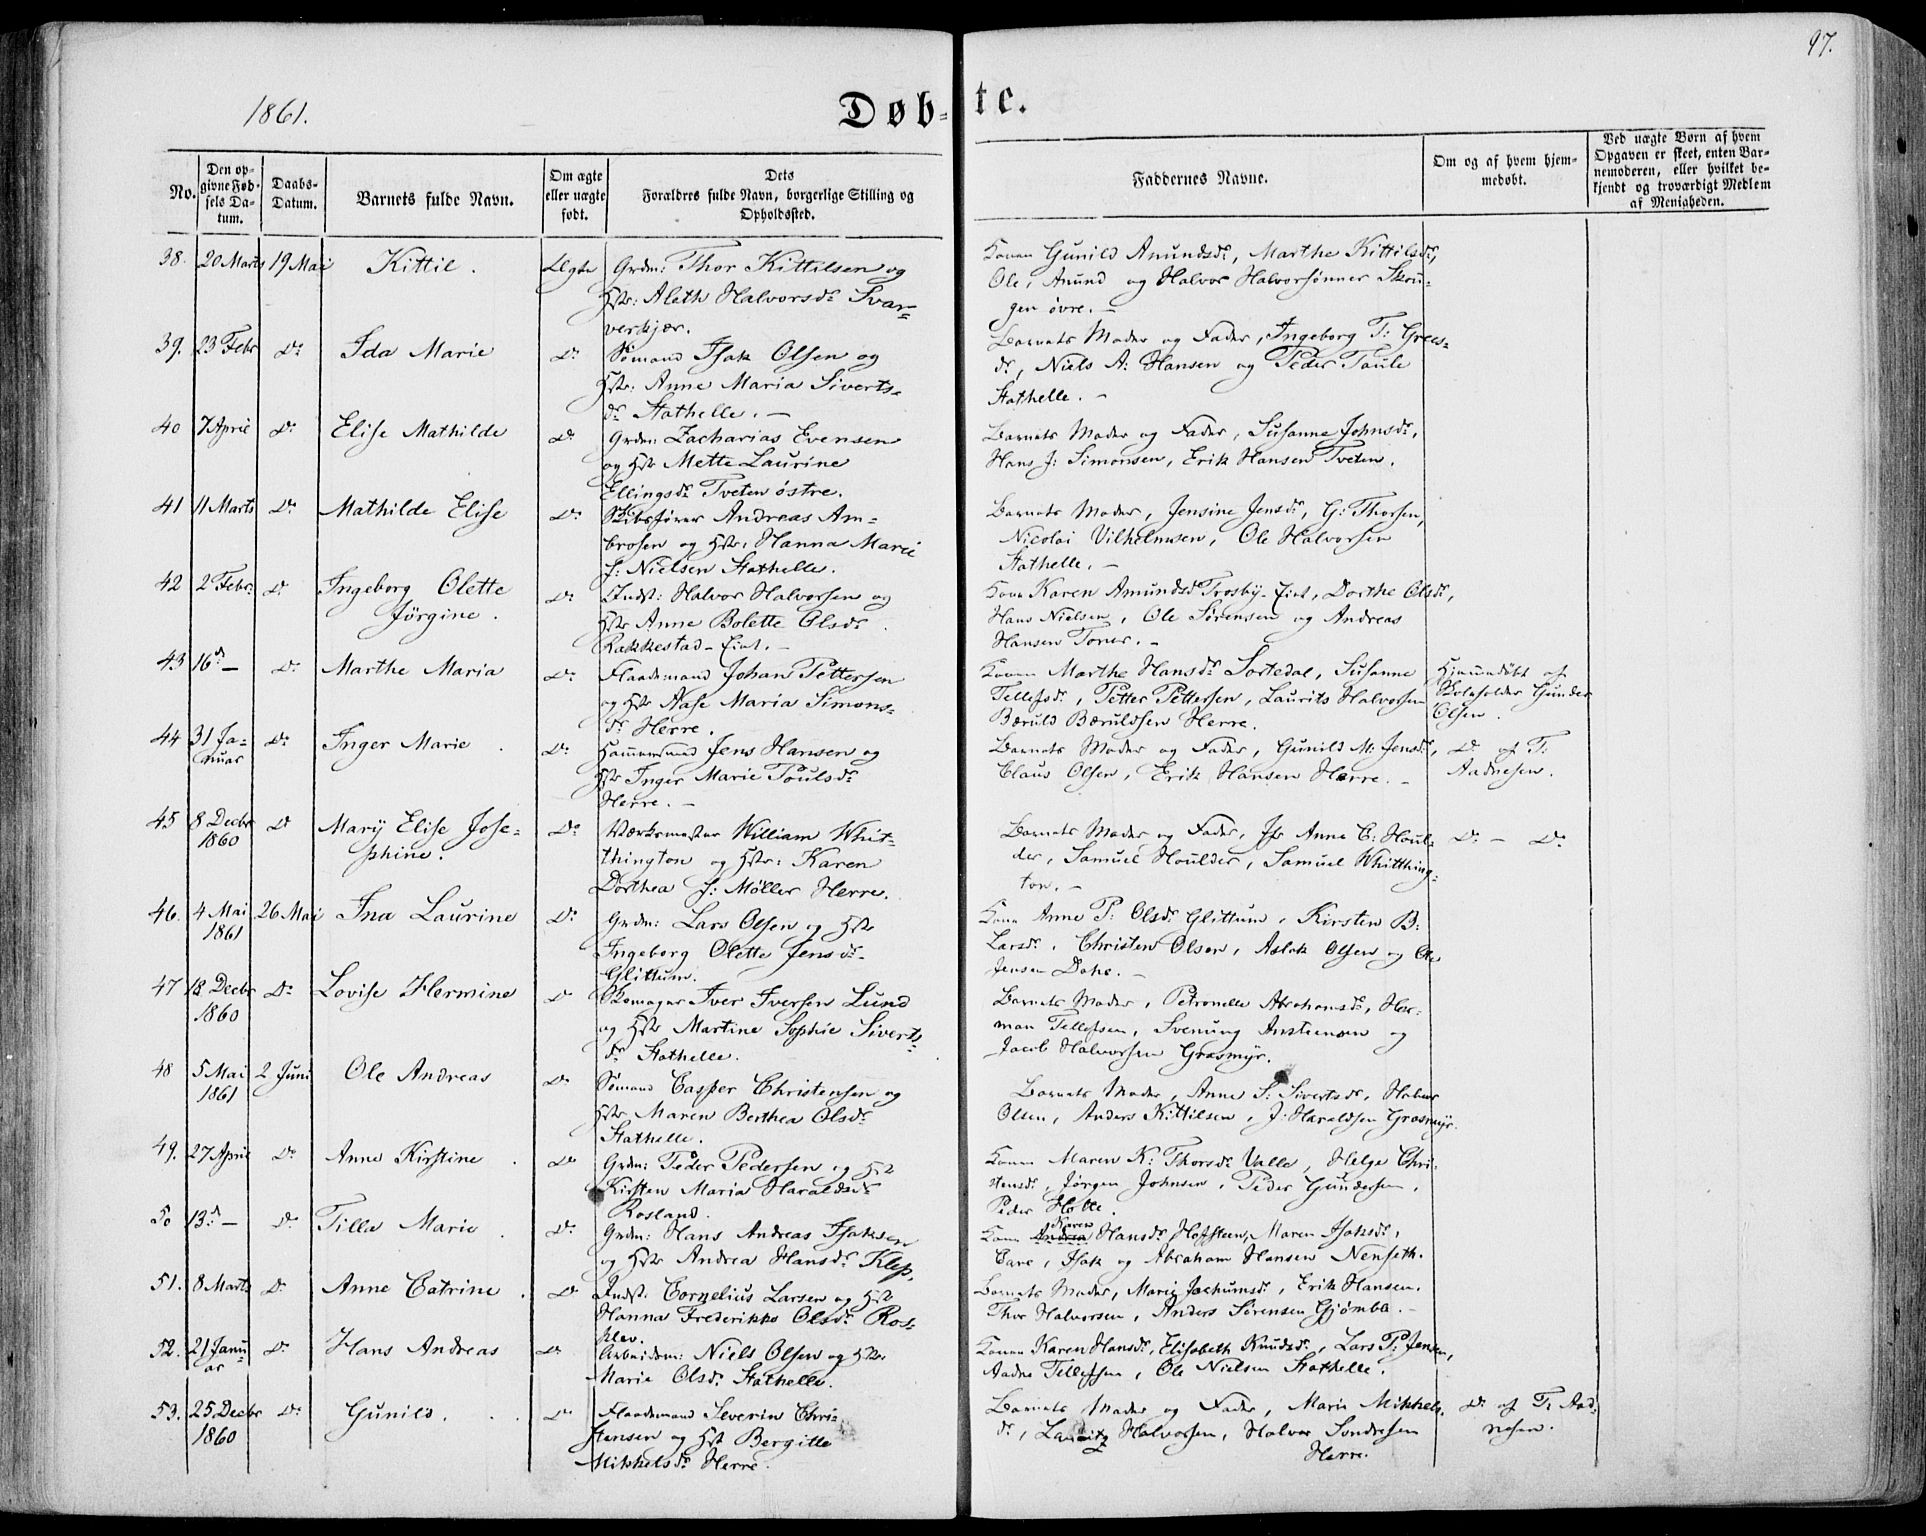 97.
1861.
Døb-te.
No.
Den opgivne Fødsels Datum.
Daabs-Datum.
Barnets fulde Navn.
Om ægte eller uægte født.
Dets Forældres fulde Navn, borgerlige Stilling og Opholdssted.
Faddernes Navne.
Om og af hvem hjemmedøbt.
Ved uægte Børn af hvem Opgaven er skeet, enten Barnemoderen, eller hvilket bekjendt og troværdigt Medlem af Menigheden.
38. 20 Marts 19 Mai Kittil. Ægte Grdm: Thor Kittilsen og
Hstr: Aleth Halvorsdr Svar=
verkjær.
Konen Gunild Anundsdr, Marthe Kittilsdr,
Ole, Anund og Halvor Halvorsønner Skou=
gen øvre. —
39. 23 Febr Do Ida Marie Do Sømand Isak Olsen og
Hstr: Anne Maria Siverts=
dr Stathelle. —
Barnets Moder og Fader, Ingeborg T:
dr, Niels A: Hansen og Peder Poule
Stathelle. —
40 7 April Do Elise Mathilde Do Grdm: Zacharias Evensen
og Hstr Mette Laurine
Ellingsdr Tveten østre.
Barnets Moder og Fader, Susanne Johnsdr,
Hans J: Simonsen, Erik Hansen Tveten.
41 11 Marts Do Mathilde Elise Do Skibsfører Andreas Am=
brosen og Hstr: Hanna Marie
f: Nielsen Stathelle.
Barnets Moder, Jensine Jensdr, G: Thorsen,
Nicolai Vilhelmsen, Ole Halvorsen
Stathelle. —
42 2 Febr: Do Ingeborg Olette
Jørgine. Do Indst: Halvor Halvorsen og
Hstr Anne Bolette Olsdr
Rakkestad-Eiet. —
Kone Karen Amundsdr Trosby-Eiet, Dorthe Olsdr,
Hans Nielsen, Ole Sørensen og Andreas
Hansen Toner. —
43 16 d — Do Marthe Maria Do Flaademand Johan Pettersen
og Hstr Aase Maria Simons=
dr Herre.
Konen Marthe Hansdr Sortedal, Susanne
Tellefsdr, Petter Pettersen, Laurits Halvorsen
Bæruld Bæruldsen Herre.
Hjemmedøbt af
Skoleholder Gunder
Olsen.
44 31 Ja=
nuar Do Inger Marie Do Hammersmed Jens Hansen og
Hstr Inger Marie Poulsdr
Herre. —
Barnets Moder og Fader, Gunild M. Jensdr,
Claus Olsen, Erik Hansen Herre. —
Do af T:
Aadnesen.
45 8 Decbr
1860 Do Mary Elise Jose=
phine. Do Værksmester William Whit=
thington og Hstr: Karen
Dorthea f: Møller Herre.
Barnets Moder og Fader, Jfr Anne C: Houl=
der, Samuel Houlder, Samuel Whitthing=
ton. —
Do — Do
46. 4 Mai
1861 26 Mai Ina Laurine Do Grdm: Lars Olsen og Hstr
Ingeborg Olette Jensdr
Glittum.
Kone Anne P: Olsdr Glittum, Kirsten B:
Larsdr, Christen Olsen, Aslak Olsen og Ole
Jensen Dahe. —
47 18 Decbr
1860 Do Lovise Hermine Do Skomager Iver Iversen Lund
og Hstr Martine Sophie Siverts=
dr Stathelle.
Barnets Moder, Petronelle Abrahamsdr, Her=
man Tellefsen, Svenung Anstensen og
Jacob Halvorsen Grasmyr.
48 5 Mai
1861 2 Juni Ole Andreas Do Sømand Casper Christensen og
Hstr Maren Berthea Olsdr
Stathelle.
Barnets Moder, Anne S: Sivertsdr,
Olsen, Anders Kittilsen, J: Haraldsen Grasmyr.
49. 27 April Do Anne Kirstine Do Grdm: Peder Pedersen og Hst
Kirsten Maria Haraldsdr
Rosland.
Konen Maren K: Thorsdr Valle, Helge Chri=
stensdr, Jørgen Johnsen, Peder Gundersen,
Peder Holte.
50 13 d — Do Tilla Marie Do Grdm: Hans Andreas Isaksen
og Hstr Andrea Hansdr Klep.
Kone Andrea Karen Hansdr Hoffsteen, Maren Isaksdr,
Care, Isak og Abraham Hansen Nenseth.
51. 8 Marts Do Anne Catrine. Do Indst: Cornelius Larsen og Hst
Hanna Frederikke Olsdr Ros=
klev.
Barnets Moder, Marie Jochumsdr, Erik Hansen.
Thor Halvorsen, Anders Sørensen Gjømba. —
52. 21 Janu=
ar Do Hans Andreas Do Arbeidsm: Niels Olsen og Hstr.
Marie Olsdr Stathelle.
Konen Karen Hansdr, Elisabeth Knudsdr, Lars P: Jensen,
Aadne Tellefsen, Ole Nielsen Stathelle.
53. 25 Decbr
1860 Do Gunild. Do Flaademand Severin Chri=
stensen og Hst Bergitte
Mikkelsdr Herre.
Barnets Moder og Fader, Marie Mikkels=
dr, Lauritz Halvorsen, Halvor Sondresen
Herre.
Do af T: Aad=
nesen.